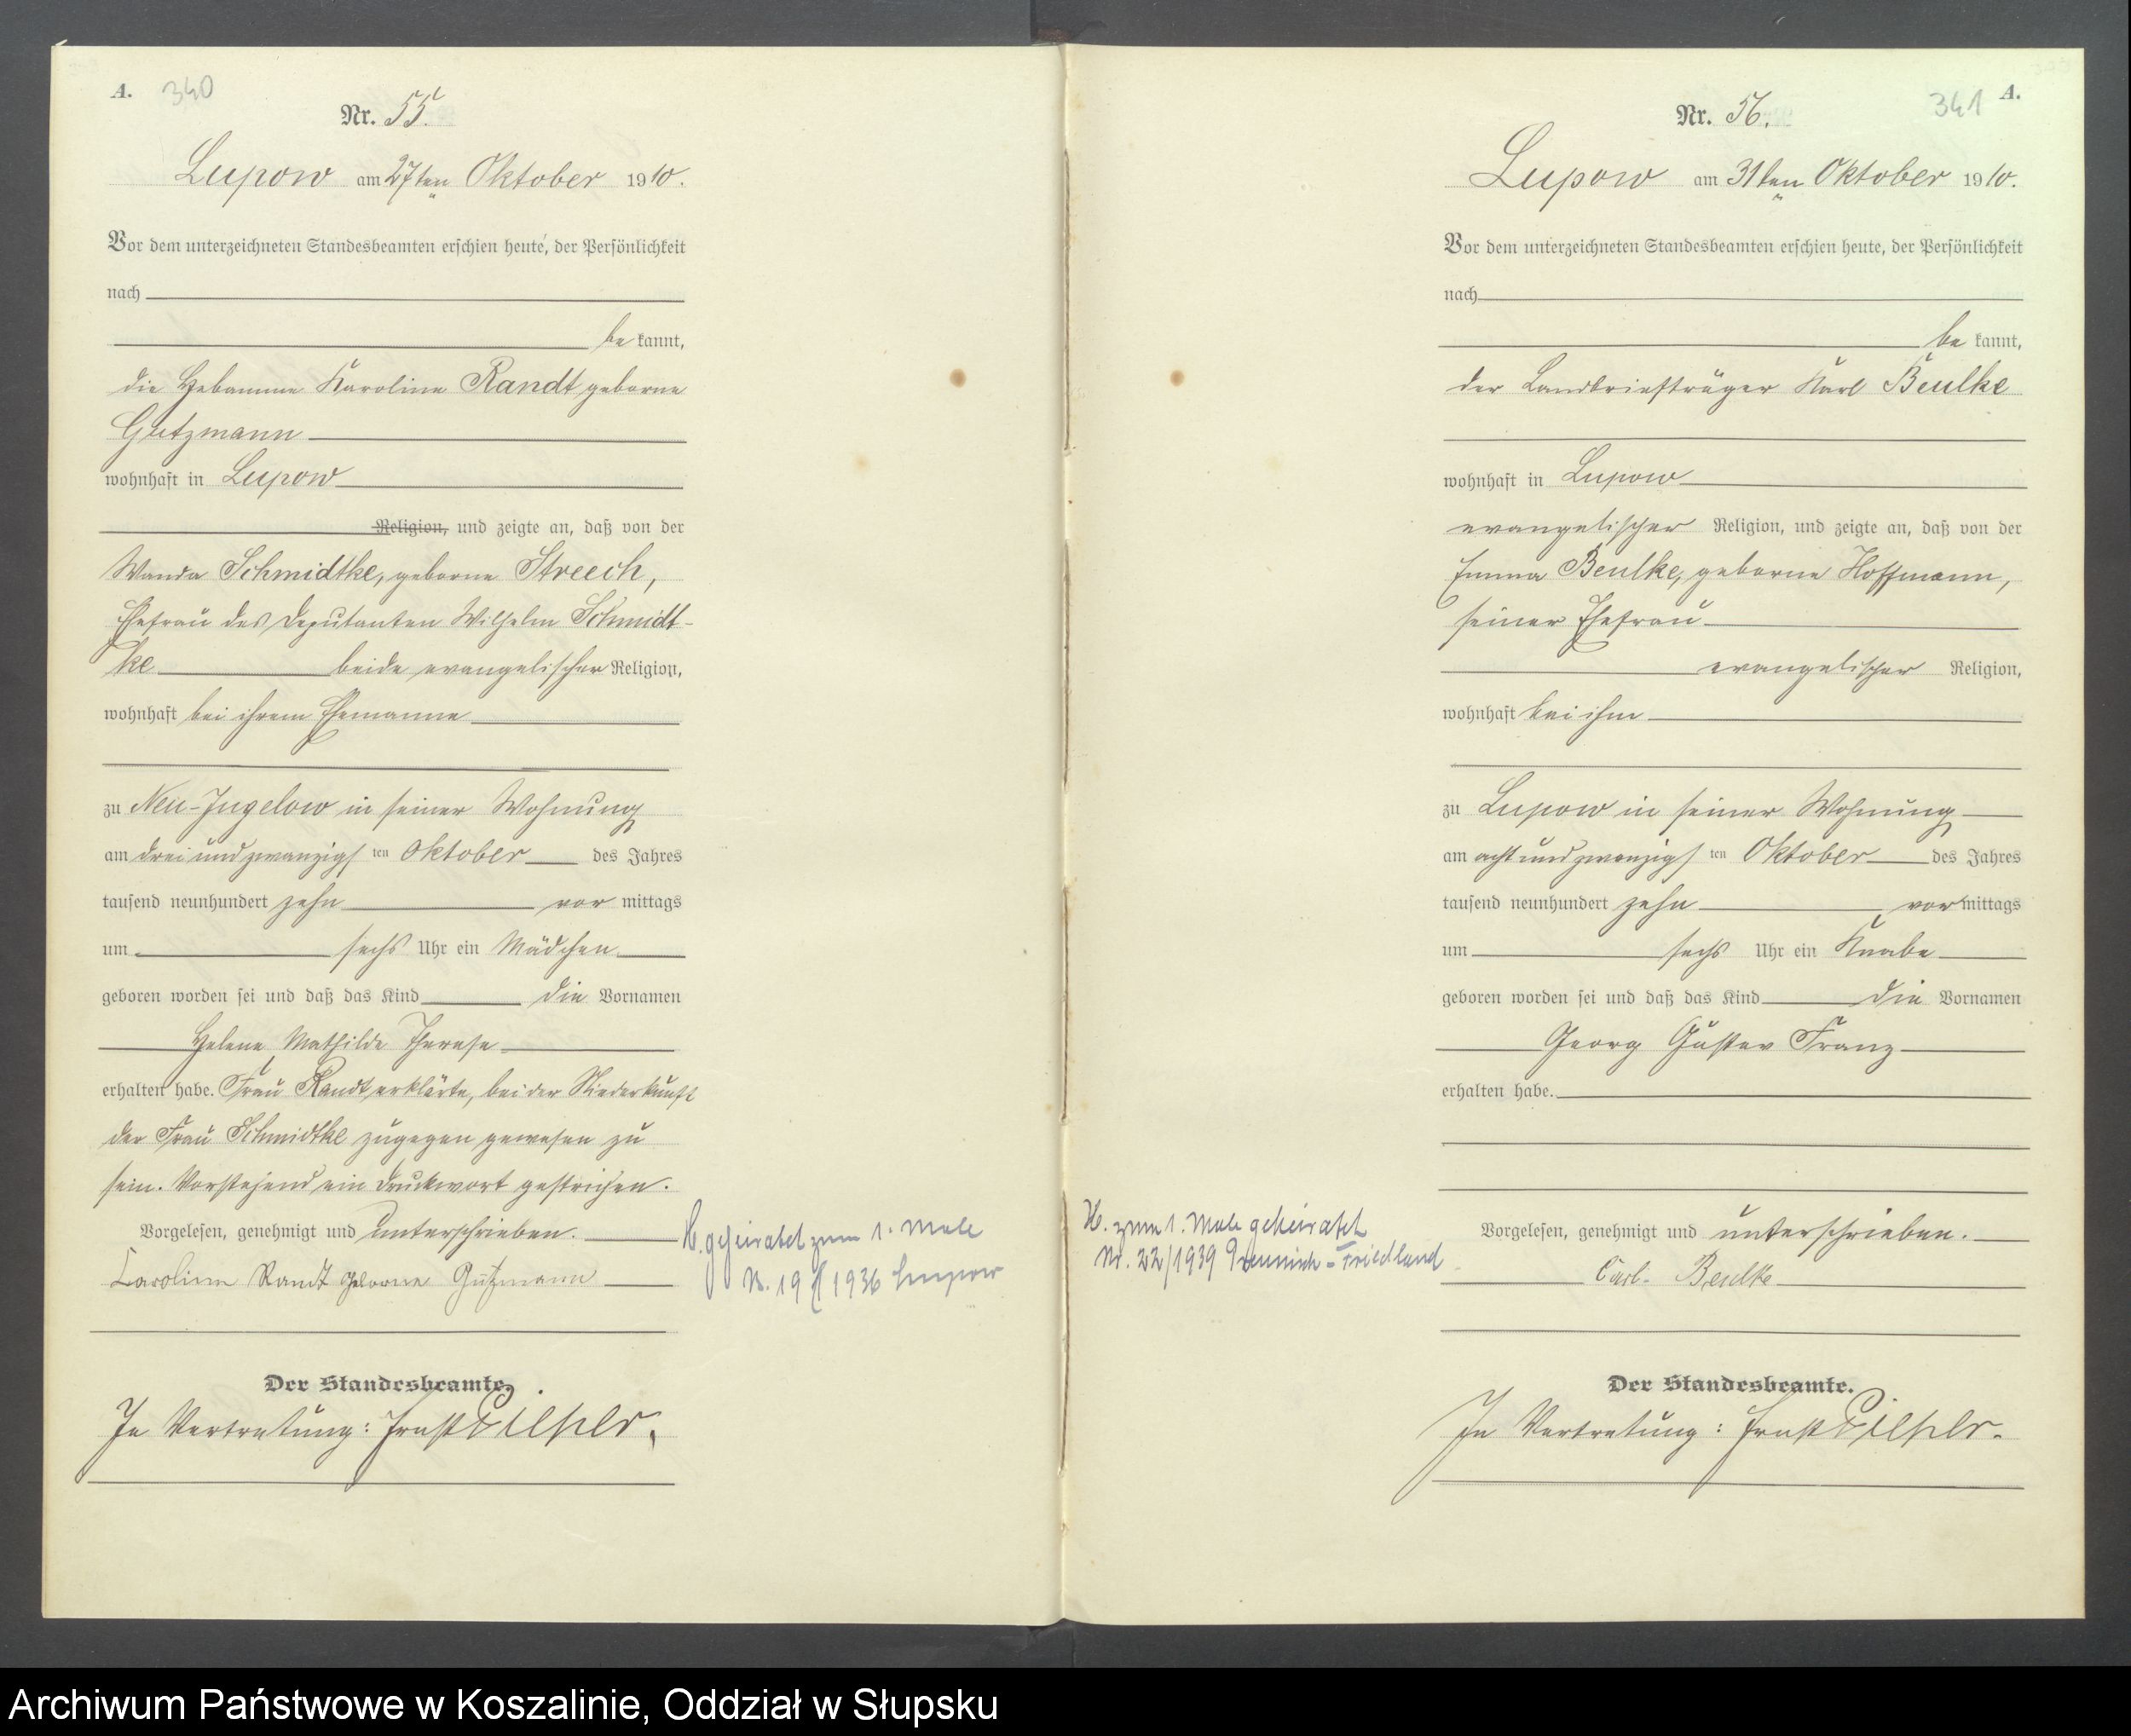 A. 340
Nr. 55.
Lupow am 27ten Oktober 1910.
Vor dem unterzeichneten Standesbeamten erschien heute, der Persönlichkeit
nach
be kannt,
die Hebamme Karoline Randt geborne
Gutzmann
wohnhaft in Lupow
Religion, und zeigte an, daß von der
Wanda Schmidtke, geborne Streech,
Ehefrau des Deputanten Wilhelm Schmidt-
ke beide evangelischer Religion,
wohnhaft bei ihrem Ehemanne
zu Neu-Jugelow in seiner Wohnung
am drei und zwanzigsten Oktober des Jahres
tausend neunhundert zehn vor mittags
um sechs Uhr ein Mädchen
geboren worden sei und daß das Kind die Vornamen
Helene Mathilde Therese
erhalten habe. Frau Randt erklärte, bei der Niederkunft
der Frau Schmidtke zugegen gewesen zu
sein. Vorstehend ein Druckwort gestrichen.
Vorgelesen, genehmigt und unterschrieben.
Caroline Randt geborne Gutzmann
H. geheiratet zum 1. Male
Nr. 19 / 1936 Lupow
Der Standesbeamte.
In Vertretung: Ernst
341 A.
Nr. 56.
Lupow am 31ten Oktober 1910.
Vor dem unterzeichneten Standesbeamten erschien heute, der Persönlichkeit
nach
be kannt,
der Landbriefträger Karl Beulke
wohnhaft in Lupow
evangelischer Religion, und zeigte an, daß von der
Emma Beulke, geborne Hoffmann,
seiner Ehefrau
evangelischer Religion,
wohnhaft bei ihm
zu Lupow in seiner Wohnung
am acht und zwanzigsten Oktober des Jahres
tausend neunhundert zehn vor mittags
um sechs Uhr ein Knabe
geboren worden sei und daß das Kind die Vornamen
Georg Gustav Franz
erhalten habe.
Vorgelesen, genehmigt und unterschrieben.
Carl Beulke
H. zum 1. Male geheiratet
Nr. 22/1939 Preussisch-Friedland
Der Standesbeamte.
In Vertretung: Ernst
Archiwum Państwowe w Koszalinie, Oddział w Słupsku